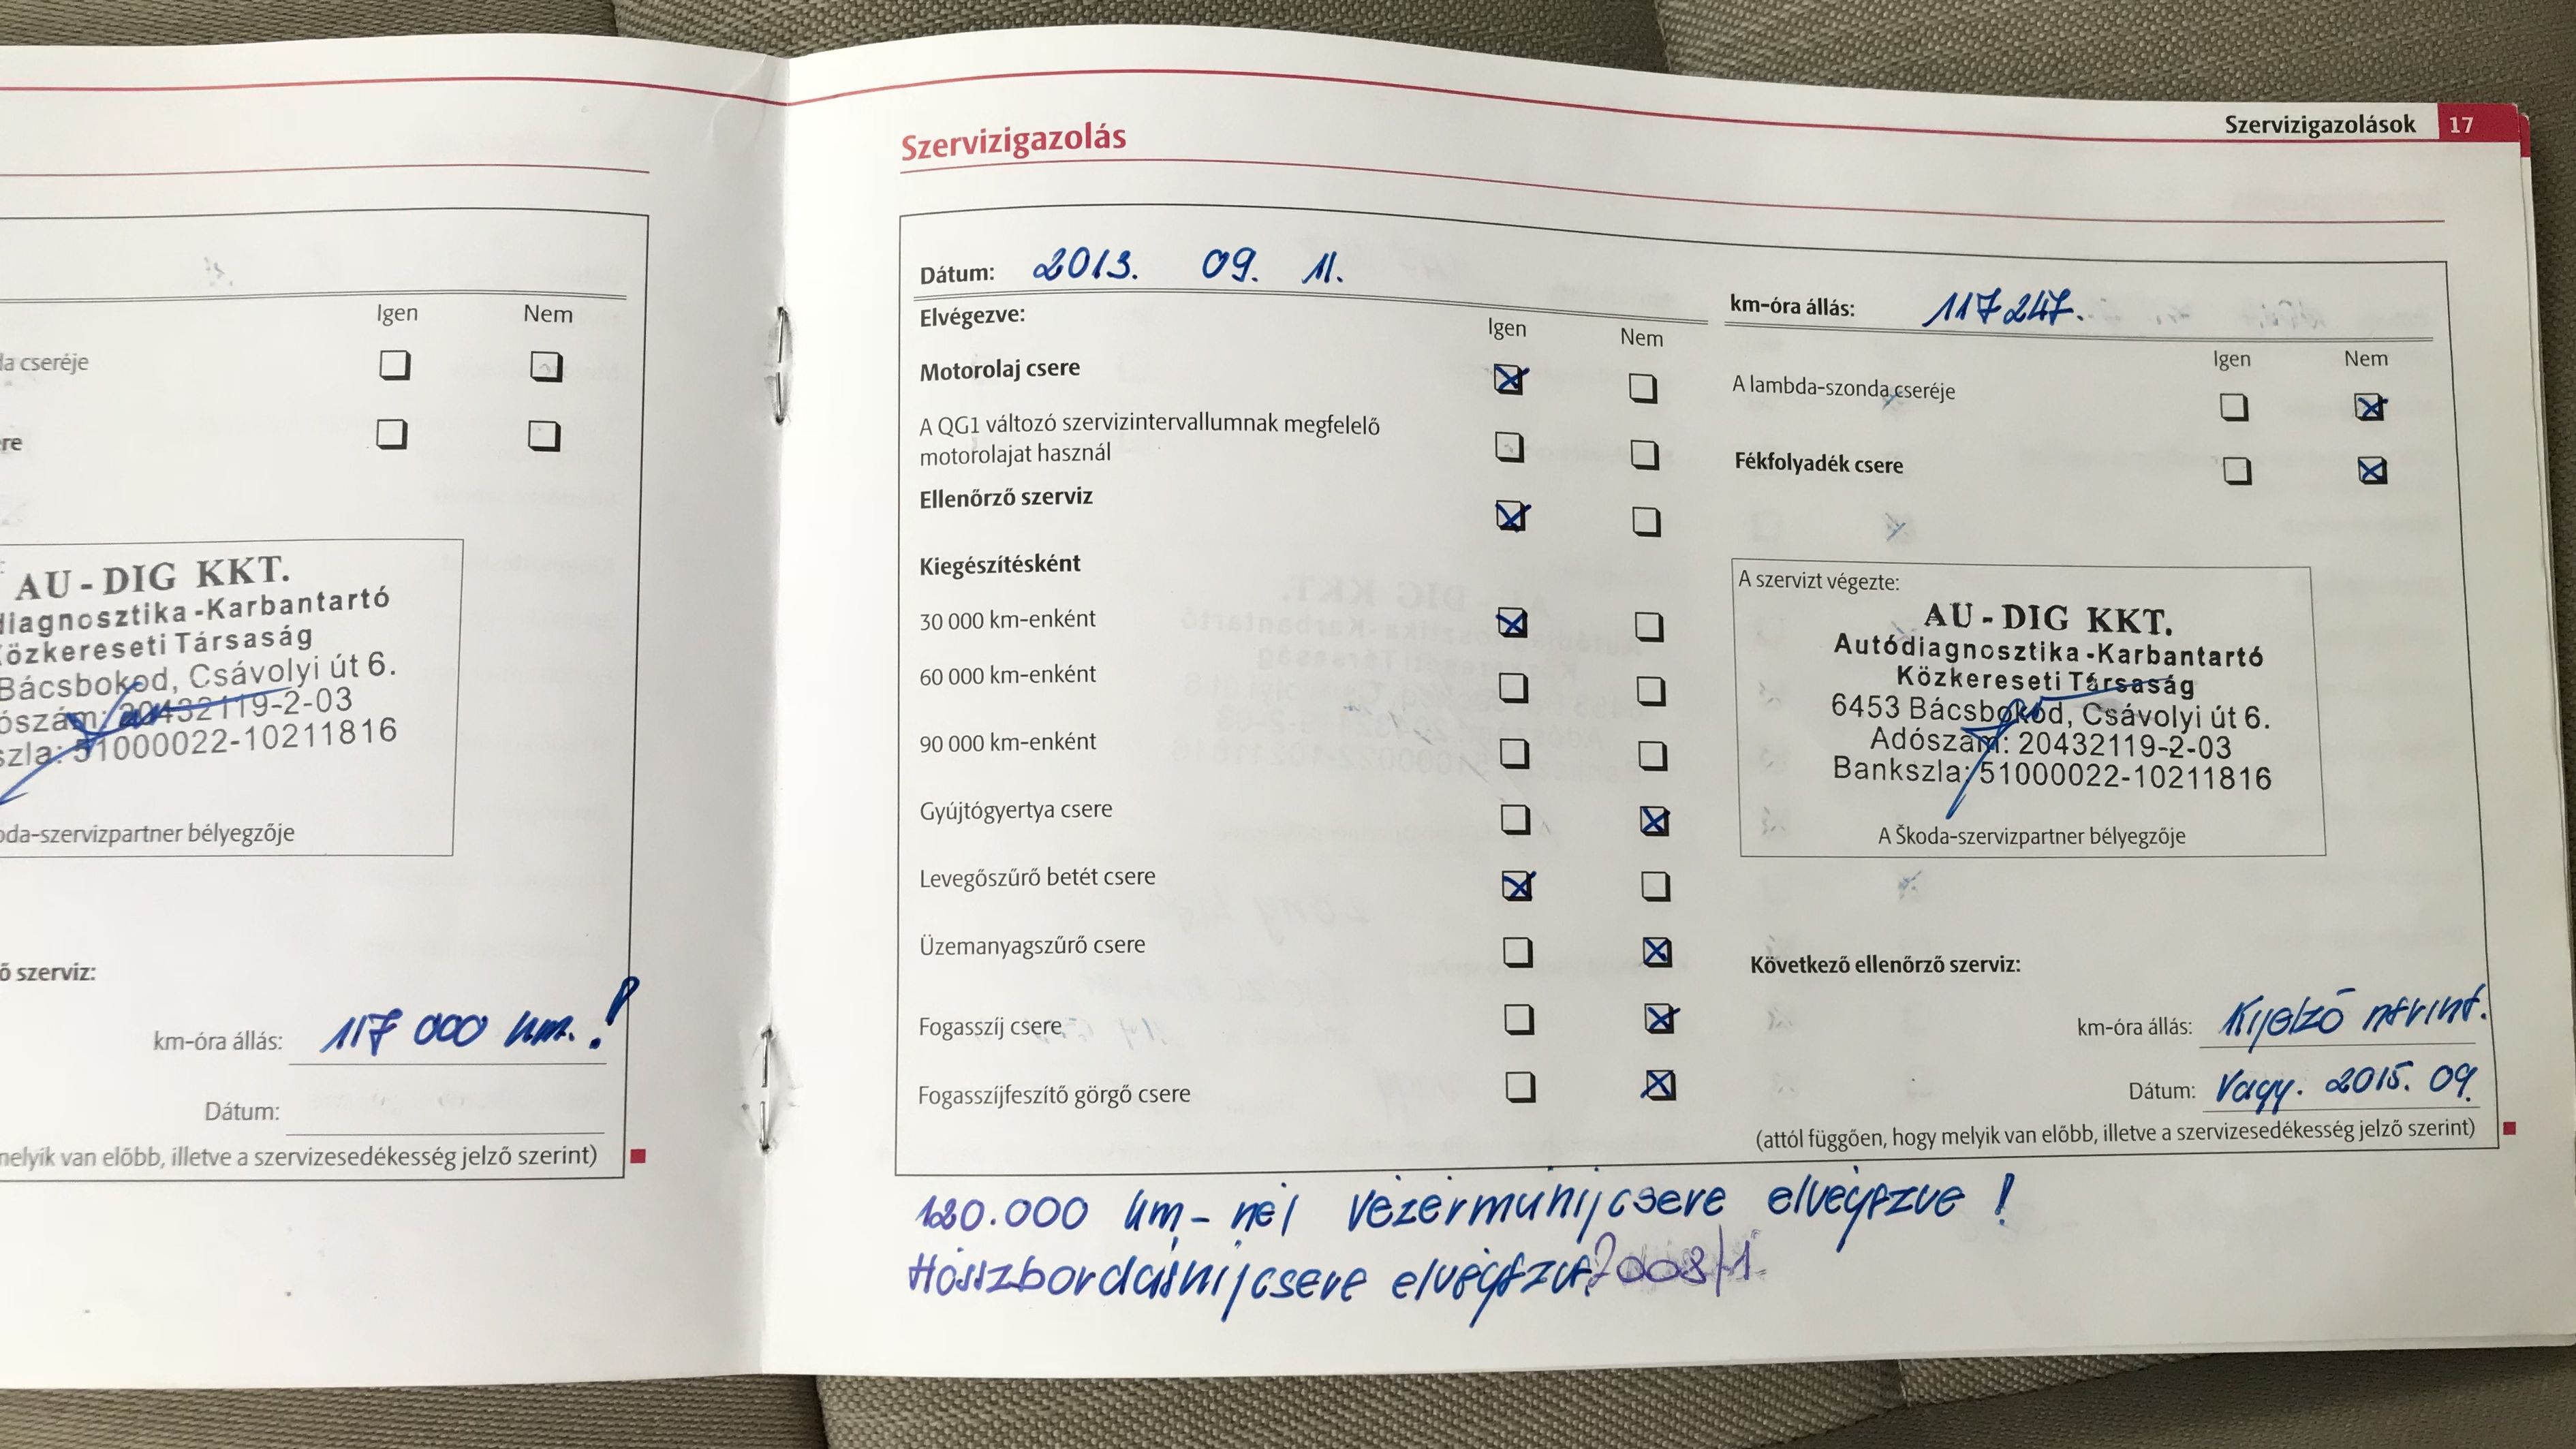 Igen Nem
la cseréje
re
AU-DIG KKT.
diagnosztika-Karbantartó
Közkereseti Társaság
Bácsbokod, Csávolyi út 6.
ószám: 20432119-2-03
szla: 51000022-10211816
oda-szervizpartner bélyegzője
ő szerviz:
km-óra állás: 117 000 km.!
Dátum:
melyik van előbb, illetve a szervizesedékesség jelző szerint)
Szervizigazolások 17
Szervizigazolás
Dátum: 2013. 09. 11.
Elvégezve:
Igen Nem
Motorolaj csere
A QG1 változó szervizintervallumnak megfelelő
motorolajat használ
Ellenőrző szerviz
Kiegészítésként
30 000 km-enként
60 000 km-enként
90 000 km-enként
Gyújtógyertya csere
Levegőszűrő betét csere
Üzemanyagszűrő csere
Fogasszíj csere
Fogasszíjfeszítő görgő csere
km-óra állás: 117247.
Igen Nem
A lambda-szonda cseréje
Fékfolyadék csere
A szervizt végezte:
AU-DIG KKT.
Autódiagnosztika-Karbantartó
Közkereseti Társaság
6453 Bácsbokod, Csávolyi út 6.
Adószám: 20432119-2-03
Bankszla: 51000022-10211816
A Škoda-szervizpartner bélyegzője
Következő ellenőrző szerviz:
km-óra állás: Kijelző szerint.
Dátum: Vagy. 2015. 09.
(attól függően, hogy melyik van előbb, illetve a szervizesedékesség jelző szerint)
km-nél vezérműszíjcsere elvégezve!
Hosszbordásszíjcsere elvégezve